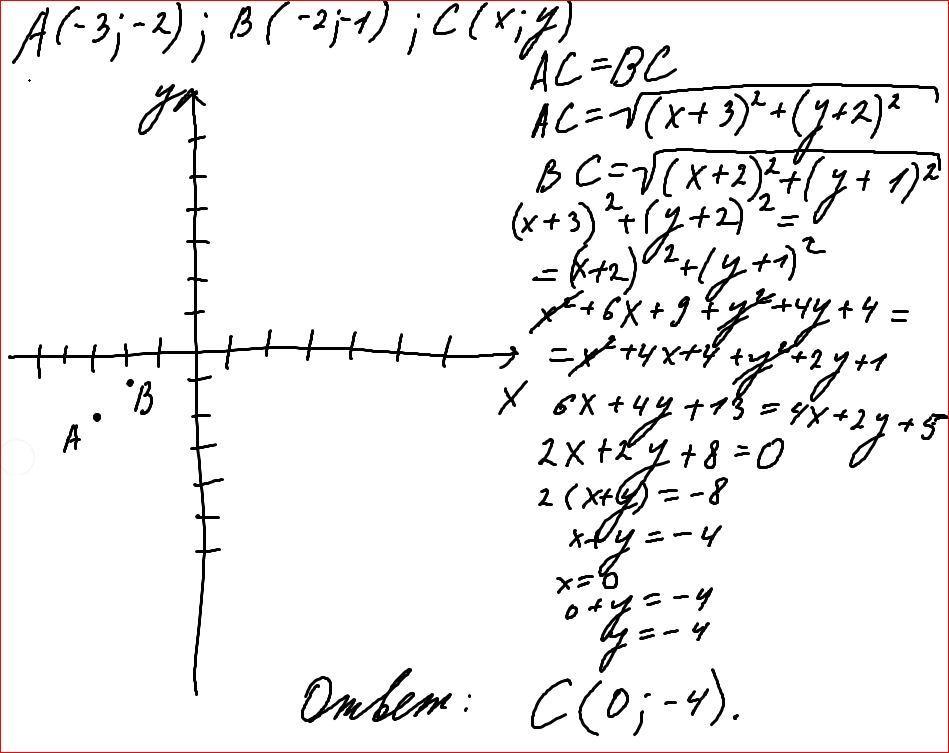 A(-3;-2); B(-2;-1); C(x;y)
AC=BC
AC=√((x+3)²+(y+2)²)
BC=√((x+2)²+(y+1)²)
(x+3)²+(y+2)²=
=(x+2)²+(y+1)²
x²+6x+9+y²+4y+4=
=x²+4x+4+y²+2y+1
6x+4y+13=4x+2y+5
2x+2y+8=0
2(x+y)=-8
x+y=-4
x=0
0+y=-4
y=-4
y
x
B
A
Ответ: C(0;-4).